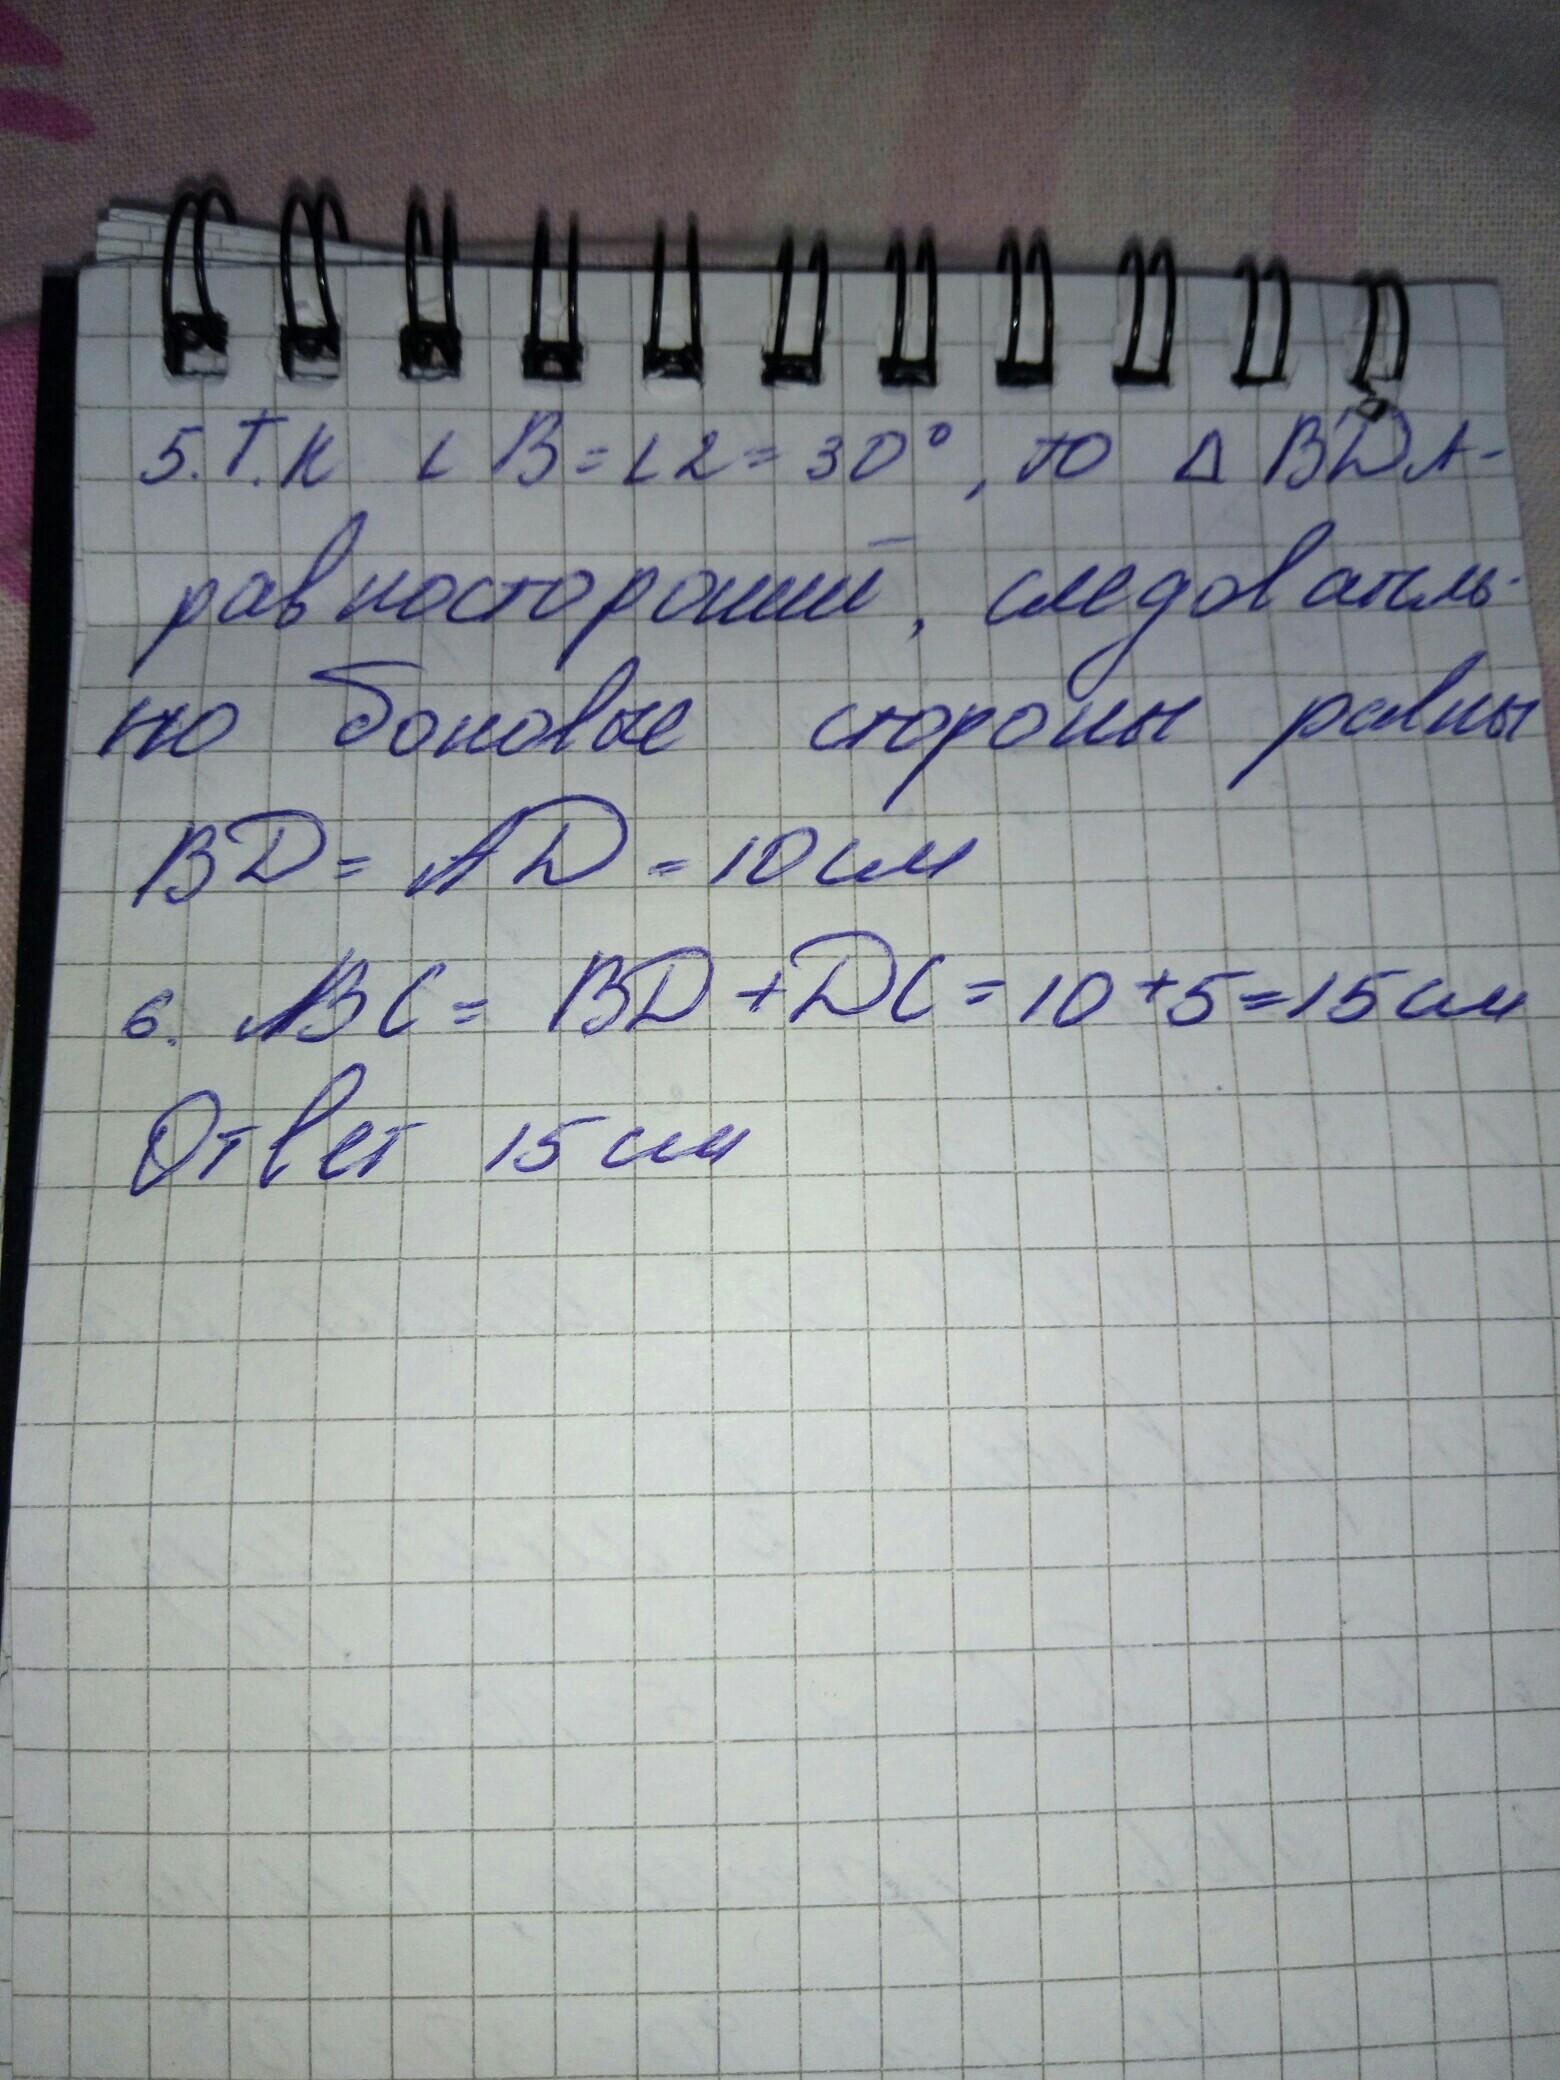 5. Т.к ∠B=∠2=30°, то Δ BDA-
равносторонний, следователь-
но боковые стороны равны
BD = AD = 10 см
6. ABC = BD + DC = 10 + 5 = 15 см
Ответ 15 см